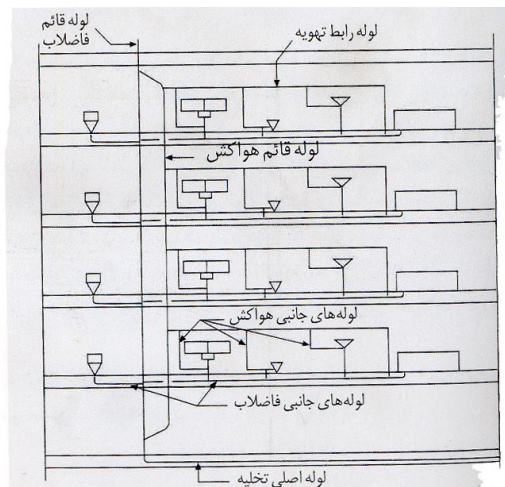 لوله قائم
فاضلاب
لوله رابط تهویه
لوله قائم هواکش
لوله‌های جانبی هواکش
لوله‌های جانبی فاضلاب
لوله اصلی تخلیه